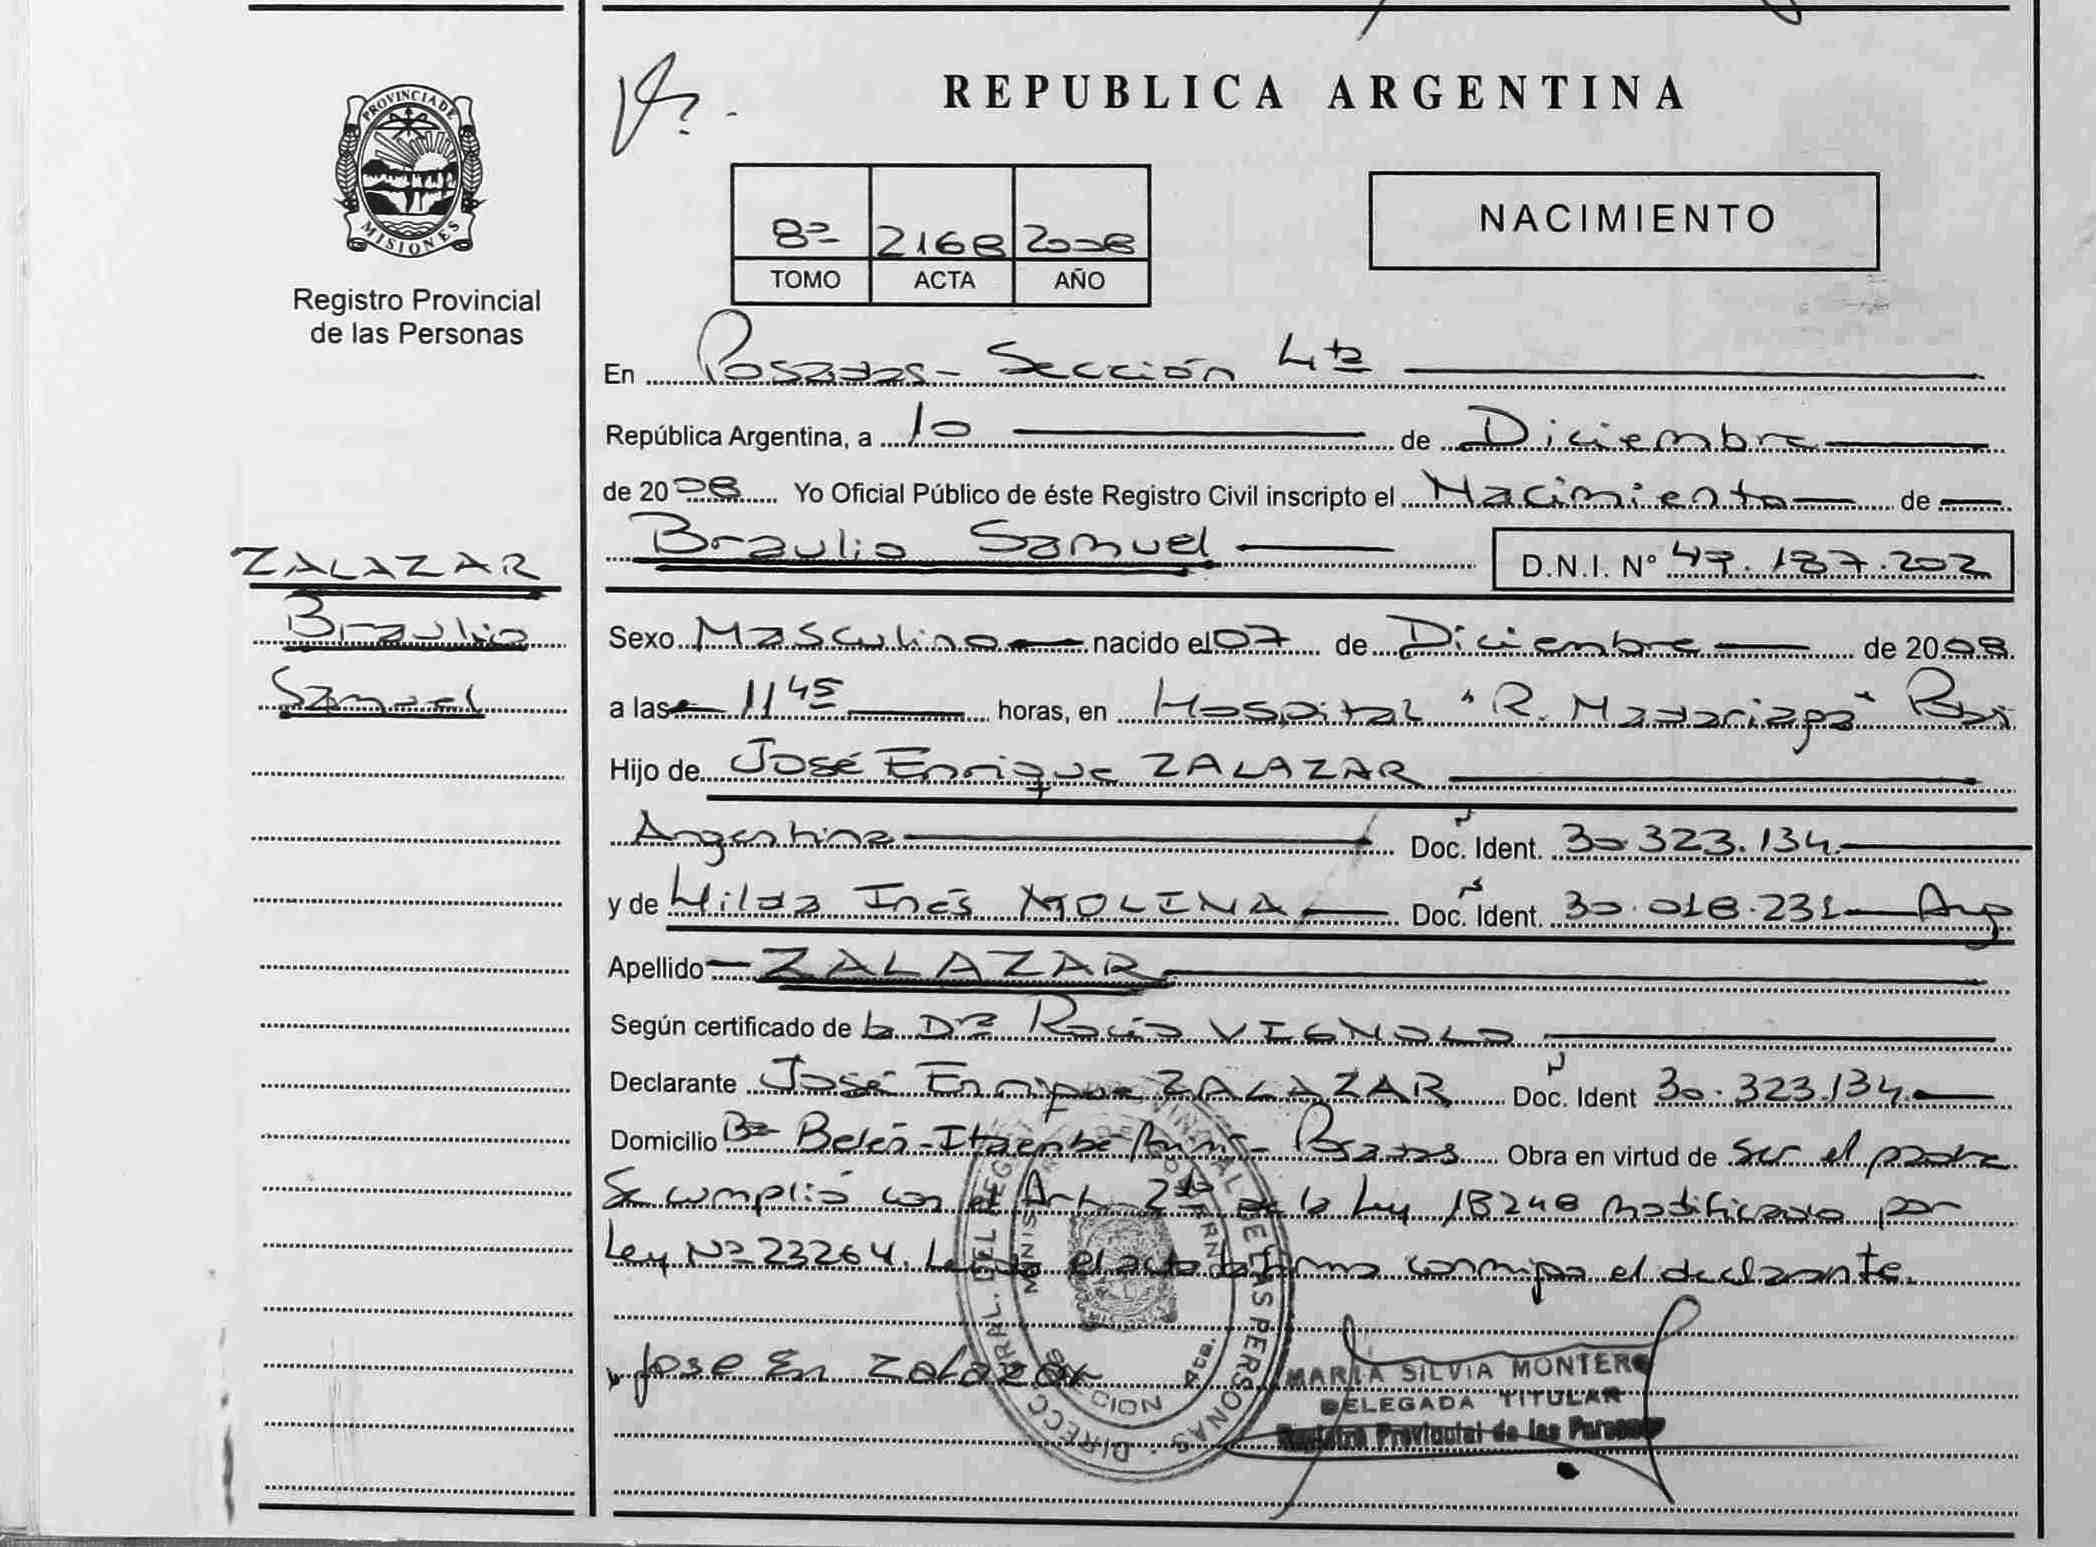 PROVINCIA DE
MISIONES
Registro Provincial
de las Personas
REPUBLICA ARGENTINA
8º 2168 2008
TOMO ACTA AÑO
NACIMIENTO
En Posadas - Sección 4ta
República Argentina, a 10 de Diciembre
de 2008 Yo Oficial Público de éste Registro Civil inscripto el Nacimiento de
Braulio Samuel D.N.I. Nº 47.187.202
ZALAZAR
Braulio
Samuel
Sexo Masculino nacido el 07 de Diciembre de 2008
a las 11 45 horas, en Hospital "R. Madariaga" Pdas
Hijo de José Enrique ZALAZAR
Argentina Doc. Ident. 30.323.134
y de Hilda Inés MOLINA Doc. Ident. 30.018.231 Arg
Apellido ZALAZAR
Según certificado de la Dra Rocío VIGNOLO
Declarante José Enrique ZALAZAR Doc. Ident 30.323.134
Domicilio Bº Belén - Itaembé Miní - Posadas Obra en virtud de ser el padre
Se cumplió con el Art. 2do de la Ley 18248 modificado por
Ley Nº 23264. Leída el acta la firma conmigo el declarante.
Jose En Zalazar
MARIA SILVIA MONTERO
DELEGADA TITULAR
Registro Provincial de las Personas
DIRECC. GRAL. DEL REG. PROVINCIAL DE LAS PERSONAS